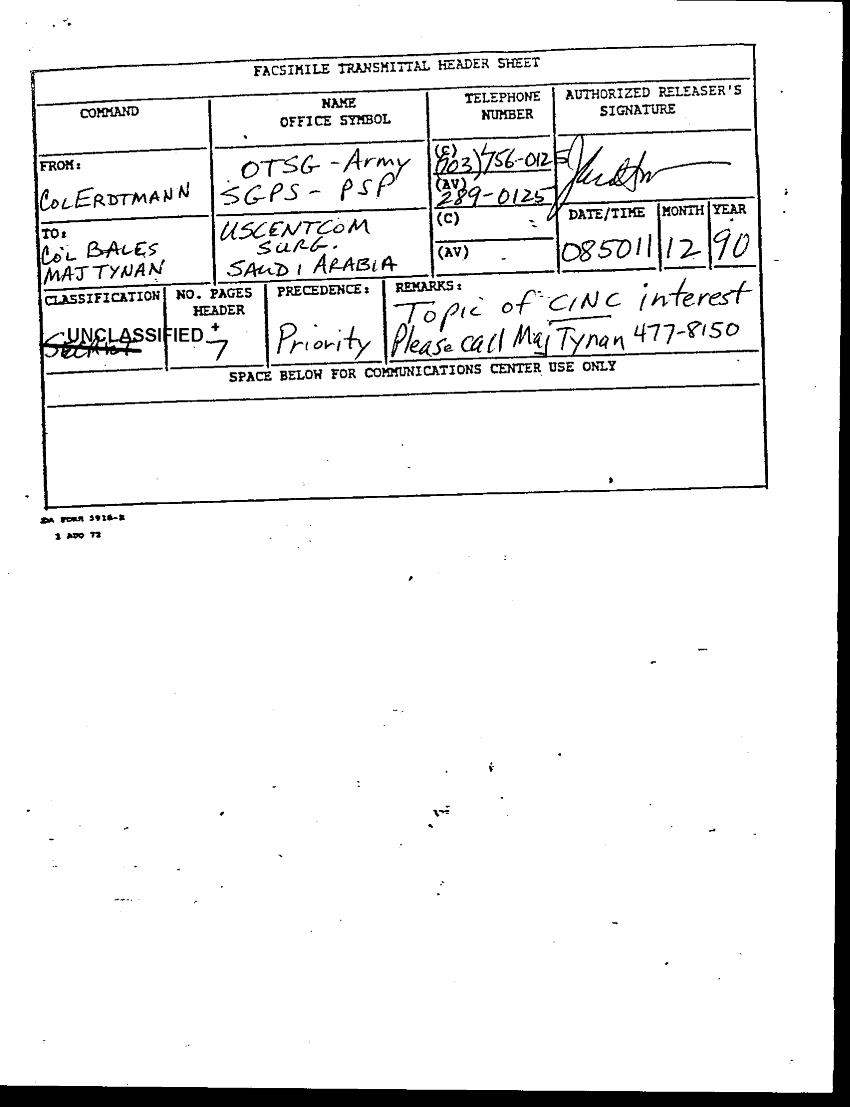 FACSIMILE TRANSMITTAL HEADER SHEET
COMMAND
NAME
OFFICE SYMBOL
TELEPHONE
NUMBER
AUTHORIZED RELEASER'S
SIGNATURE
FROM:
COL ERDTMANN
OTSG - Army
SGPS - PSP
(C)
(703) 756-0125
(AV)
289-0125
TO:
COL BALES
MAJ TYNAN
USCENTCOM
SURG.
SAUDI ARABIA
(C)
(AV)
DATE/TIME
085011
MONTH
12
YEAR
90
CLASSIFICATION
UNCLASSIFIED
NO. PAGES
HEADER
+
7
PRECEDENCE:
Priority
REMARKS:
Topic of CINC interest
Please call Maj Tynan 477-8150
SPACE BELOW FOR COMMUNICATIONS CENTER USE ONLY
DA FORM 3918-R
1 AUG 72